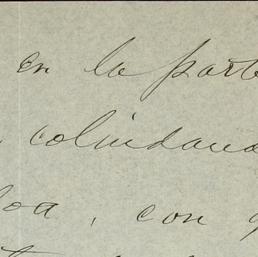 en la parte
colindand
loa, con